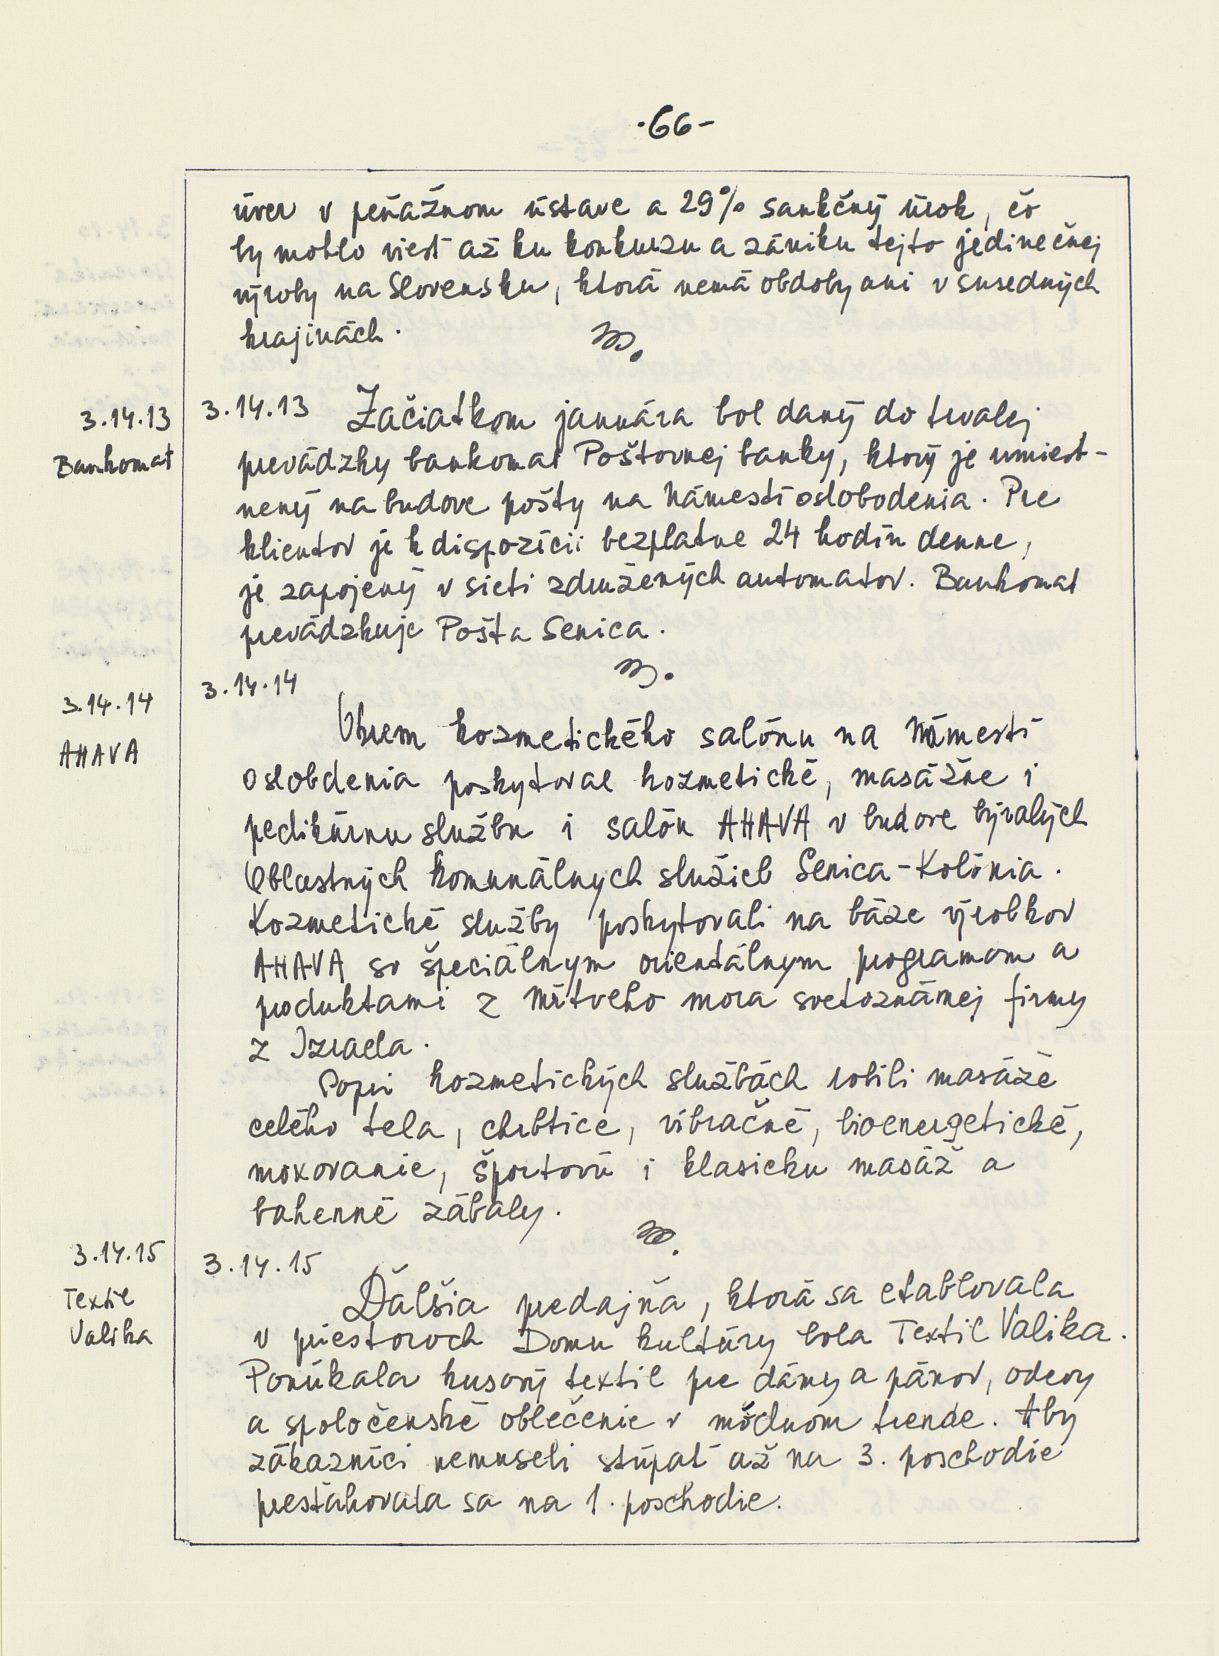 -66-
úver v peňažnom ústave a 29% sankčný úrok, čo
by mohlo viesť až ku konkurzu a zániku tejto jedinečnej
výroby na Slovensku, ktorá nemá obdoby ani v susedných
krajinách.
3.14.13
Bankomat
3.14.13 Začiatkom januára bol daný do trvalej
prevádzky bankomat Poštovnej banky, ktorý je umiest-
nený na budove pošty na Námestí oslobodenia. Pre
klientov je k dispozícii bezplatne 24 hodín denne,
je zapojený v sieti združených automatov. Bankomat
prevádzkuje Pošta Senica.
3.14.14
AHAVA
3.14.14
Okrem kozmetického salónu na Námestí
oslobdenia poskytoval kozmetické, masážne i
pedikúrnu službu i salón AHAVA v budove bývalých
Oblastných komunálnych služieb Senica-Kolónia.
Kozmetické služby poskytovali na báze výrobkov
AHAVA so špeciálnym orientálnym programom a
produktami z Mŕtveho mora svetoznámej firmy
z Izraela.
Popri kozmetických službách robili masáže
celého tela, chrbtice, vibračné, bioenergetické,
moxovanie, športovú i klasicku masáž a
bahenné zábaly.
3.14.15
Textil
Valika
3.14.15
Ďalšia predajňa, ktorá sa etablovala
v priestoroch Domu kultúry bola Textil Valika.
Ponúkala kusový textil pre dámy a pánov, odevy
a spoločenské oblečenie v módnom trende. Aby
zákazníci nemuseli stúpať až na 3. poschodie
presťahovala sa na 1. poschodie.